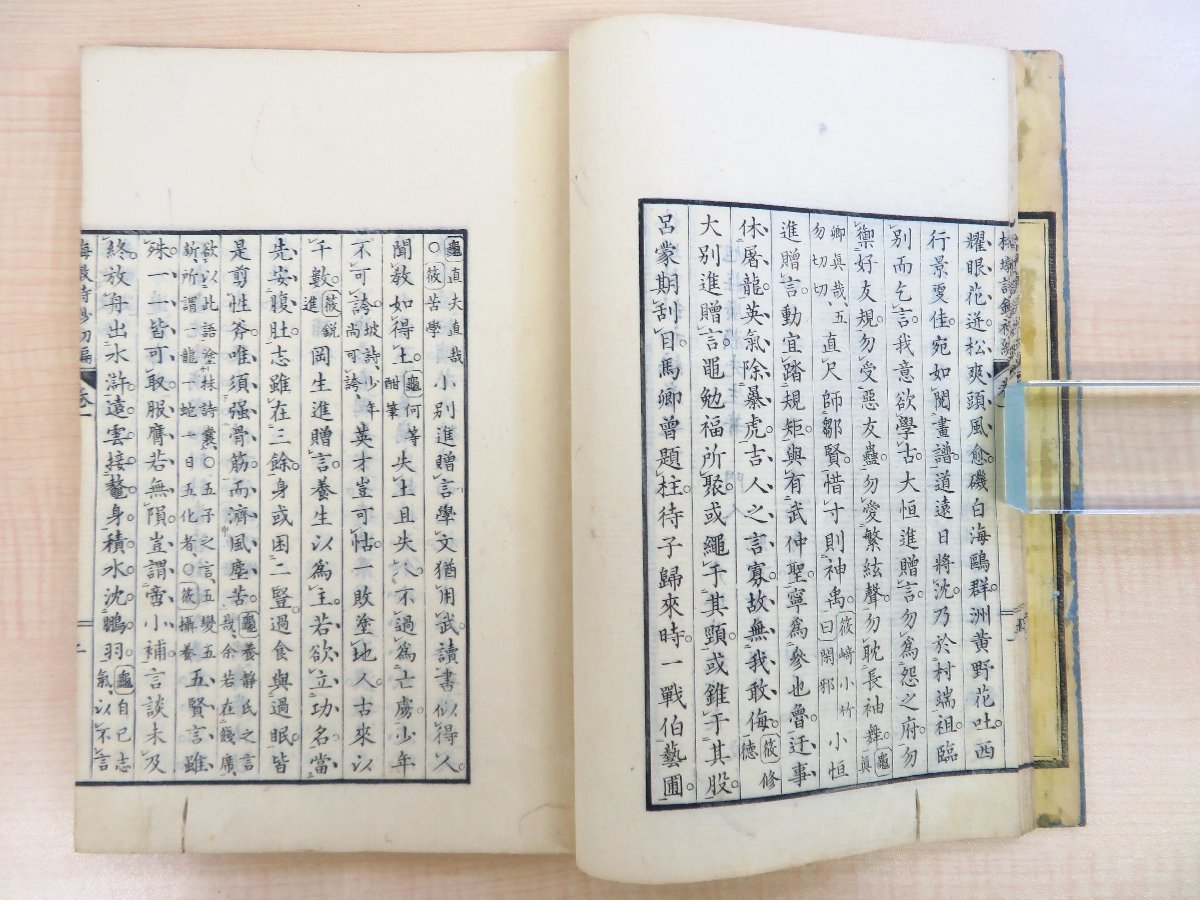 耀眼花迸松爽頭風愈磯白海鷗群洲黄野花吐西
行景愛佳宛如閲畫譜道遠日將沈乃於村端祖臨
別而乞言我意欲學古大恒進贈言勿爲怨之府勿
禦好友規勿受惡友蠱勿愛繁絃聲勿耽長袖舞龜眞
卿眞哉五直尺師鄒賢惜寸則神禹筱崎小竹曰閑邪小恒
勿切切
進贈言動宜踏規矩與有武仲聖寧爲參也魯迂事
休屠龍英氣除暴虎吉人之言寡故無我敢侮筱修德
大別進贈言黽勉福所聚或繩于其頸或錐于其股
呂蒙期刮目馬卿曾題柱待子歸來時一戰伯藝圃
龜直夫直哉
○筱苦學
小別進贈言學文猶用武讀書似得人
聞教如得土龜何等酣筆失土且失人不過爲亡虜少年
不可誇坡詩少年尚可誇英才豈可怙一敗塗地人古來以
千數筱鋭進岡生進贈言養生以爲主若欲立功名當
先安腹肚志雖在三餘身或困二豎過食與過眠皆
是剪性斧唯須强骨筋而濟風塵苦龜養靜氏之言哉余若在餞席
欲以此語塗抹詩嚢○五子之言五變五
新所謂一龍一蛇一日五化者○筱攝養五賢言雖
殊一一皆可取服膺若無隕豈謂啻小補言談未及
終放舟出水滸遠雲接鼇身積水沈鵬羽龜自已志氣以不言
梅墩詩鈔初編 卷一 二